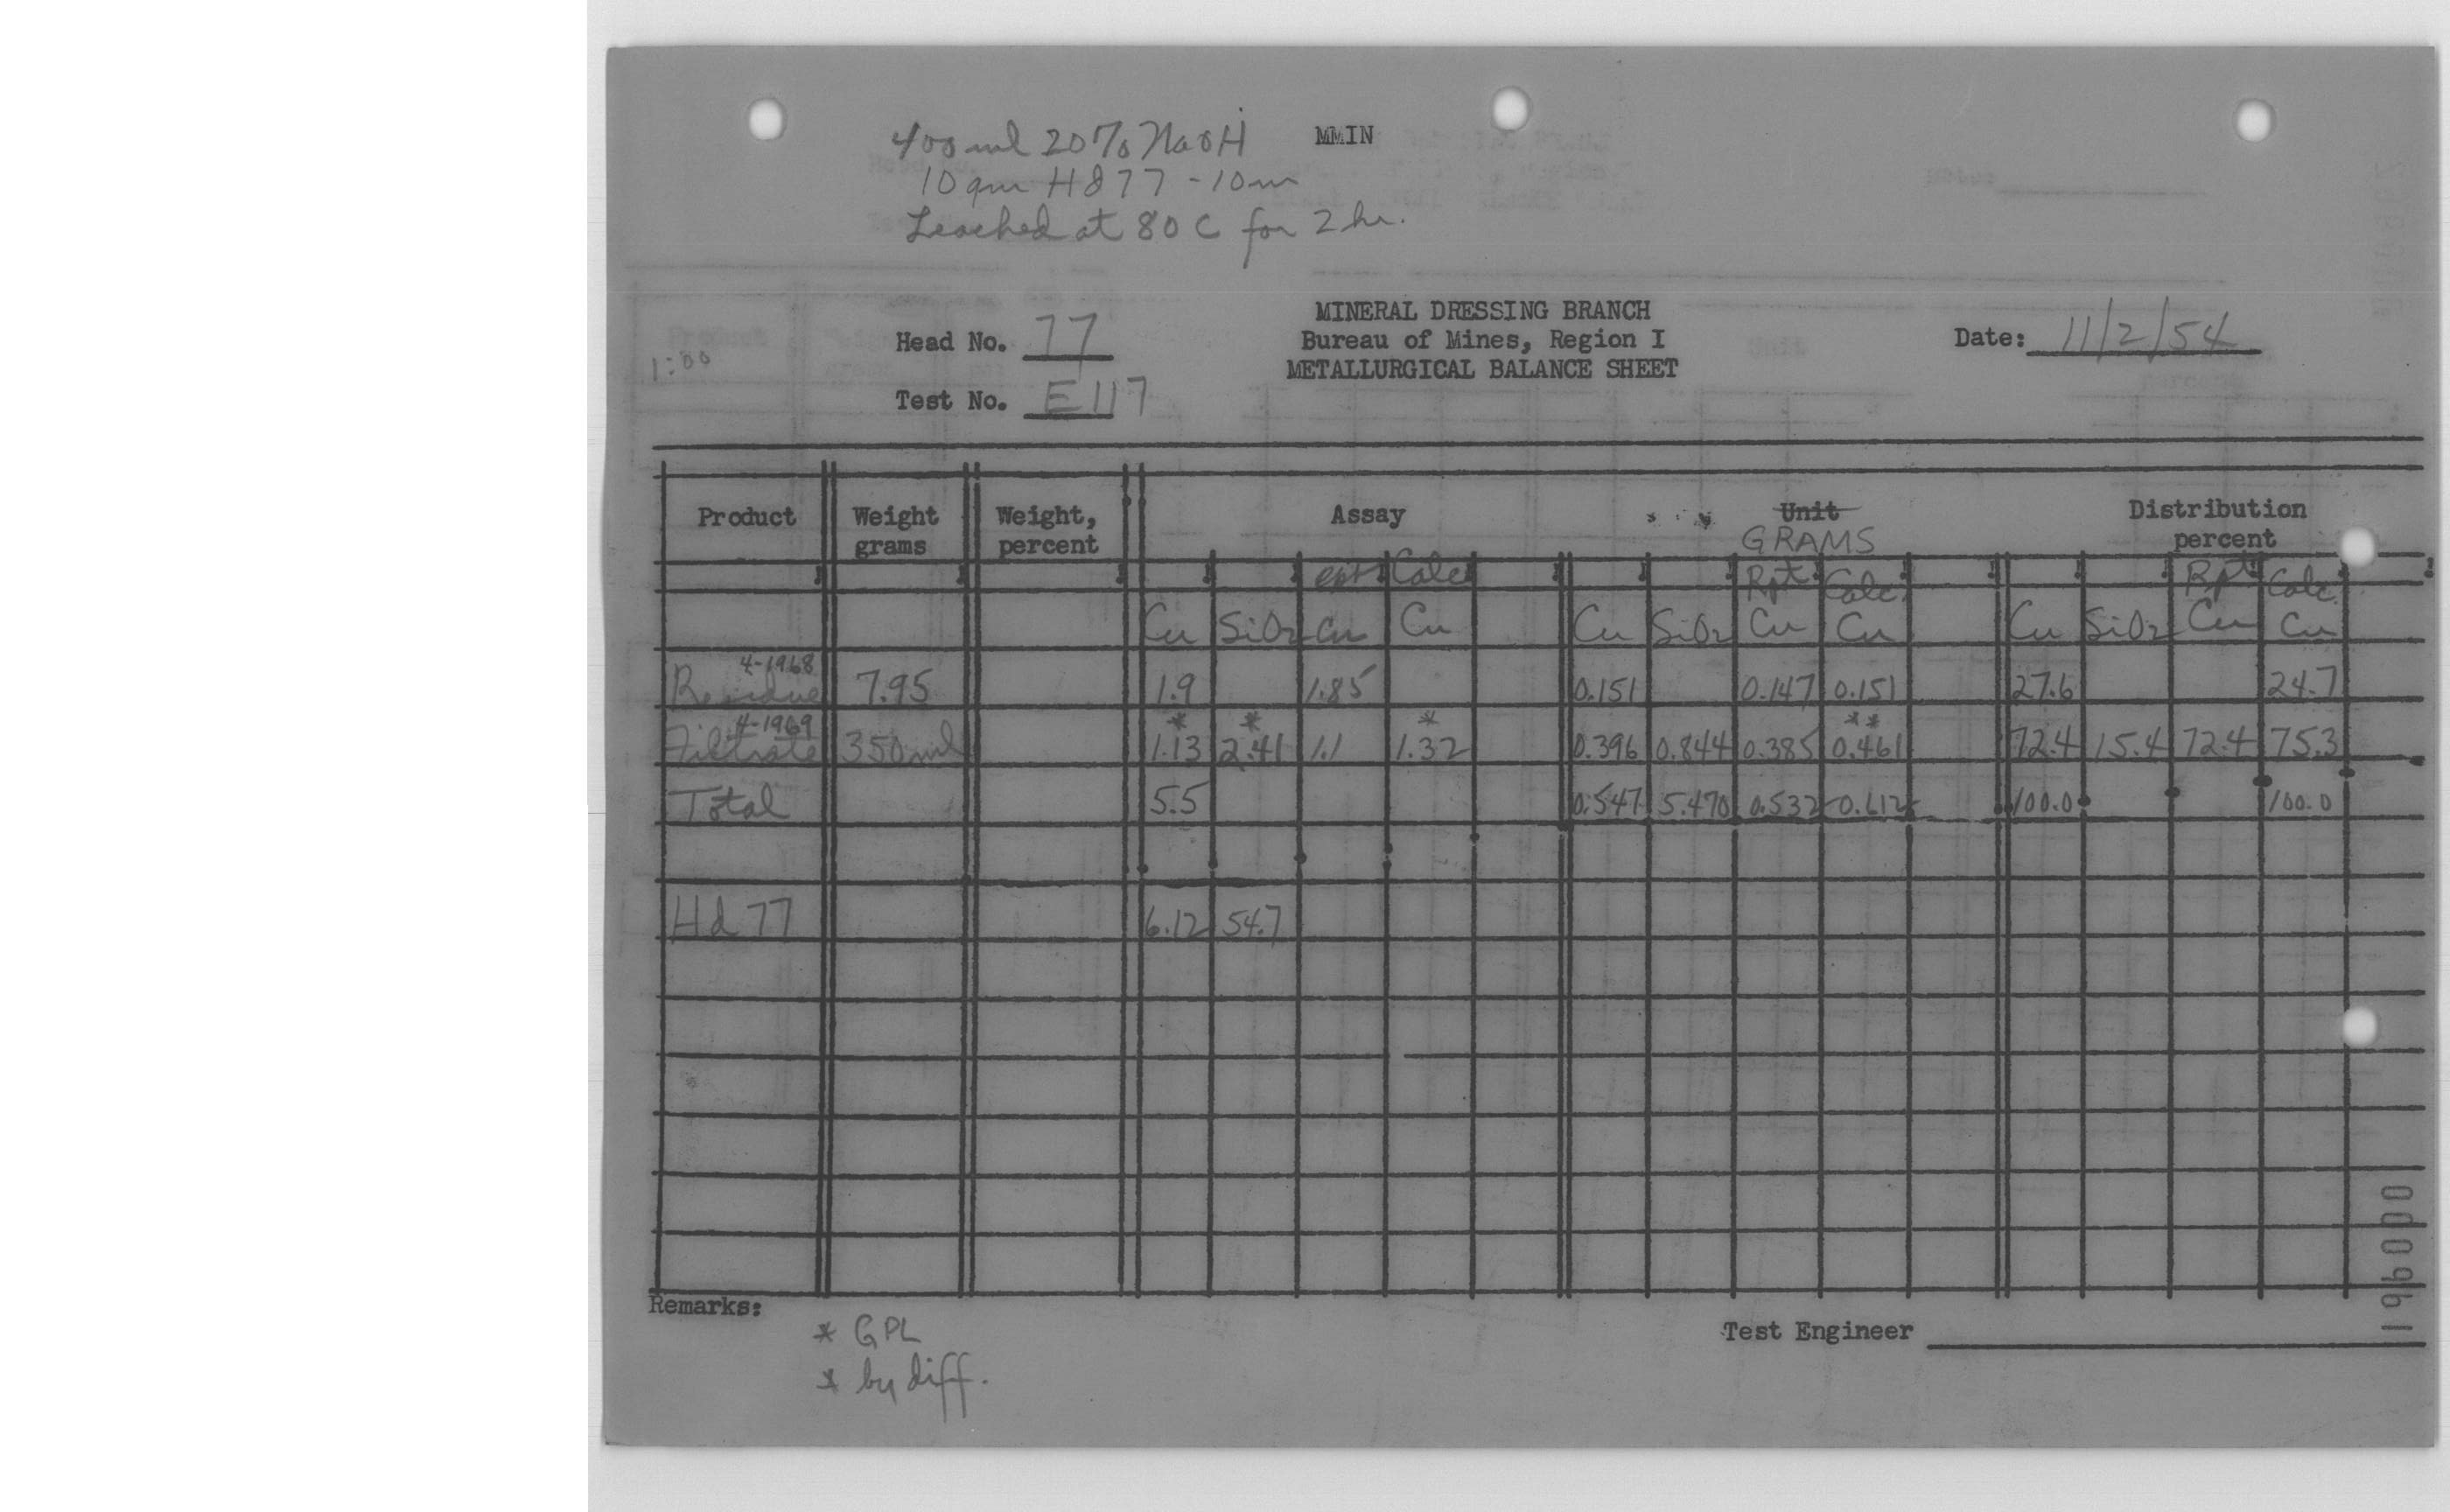 400 ml 20% NaOH MMIN
10 gm Hd 77 - 10m
Leached at 80 C for 2 hr.
MINERAL DRESSING BRANCH
Head No. 77 Bureau of Mines, Region I Date: 11/2/54
1:00 METALLURGICAL BALANCE SHEET
Test No. E117
Product Weight grams Weight, percent Assay Unit GRAMS Distribution percent
Rpt Calc Rpt Calc. Rpt Calc.
Cu SiO2 Cu Cu Cu SiO2 Cu Cu Cu SiO2 Cu Cu
4-1968
Residue 7.95 1.9 1.85 0.151 0.147 0.151 27.6 24.7
4-1969 * * * **
Filtrate 350 ml 1.13 2.41 1.1 1.32 0.396 0.844 0.385 0.461 72.4 15.4 72.4 75.3
Total 5.5 0.547 5.470 0.532 0.612 100.0 100.0
Hd 77 6.12 54.7
Remarks:
* GPL
Test Engineer
* by diff.
000961